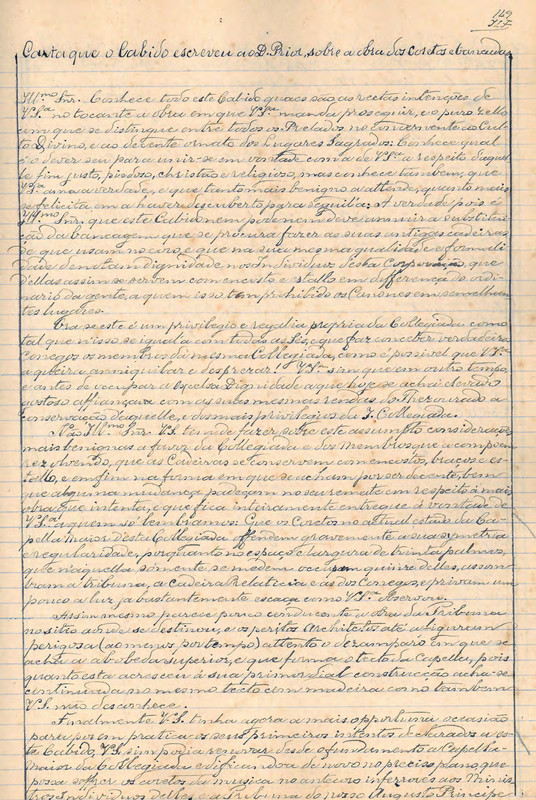 149
Carta que o Cabido escreveu ao D. Prior, sobre a obra dos Coretos e bancadas
Ill.mo Snr. Conhece todo este Cabido quaes são as rectas intenções de
V.S.a no tocante a obra em que V.S.a manda proseguir, e o puro zello
com que se distingue entre todos os Prelados no concernente ao Cul-
to Divino, e ao decente ornato dos Lugares Sagrados: Conhece qual
é o dever seu para unir-se em vontade com a de V.S.a a respeito daquel-
le fim justo, piedoso, christão e religioso, mas conhece tambem, que
V.S.a ama a verdade, e que tanto mais benigno a attende, quanto mais
se felicita em a haver descuberto para seguil-a: A verdade pois é
Ill.mo Snr. que este Cabido nem pode nem deve annuir a substitui-
ção da bancagem que se procura fazer as suas antigas cadeiras
de que usam no coro, e que na sua mesma qualidade e formali-
dade denotam dignidade nos Individuos desta Corporação, que
dellas assim se servem com encosto e stallo em differença do ordi-
nario da gente, a quem isso tem prohibido os Canones em semelhan-
tes lugares.
Ora se este é um privilegio e regalia propria da Collegiada como
tal que n'isso se iguala com todas as Sés, e que faz conceber verdadeiros
Conegos os membros da mesma Collegiada, como é possivel que V.S.a
a queira anniquilar e desprezar! V.S.a sim que em outro tempo,
e antes de occupar a excelsa Dignidade a que hoje se acha elevado
gustoso affiançava com as suas mesmas rendas do Thezourado a
conservação daquelle, e dos mais privilegios da I. Collegiada.
Não Ill.mo Snr. V.S. tem de fazer sobre este assumpto considerações
mais benignas a favor da Collegiada e dos Membros que a compoem
rezolvendo, que as Cadeiras se conservem com encostos, braços e es-
tallo, e emfim na forma em que se acham por ser decente, bem
que alguma mudança padeçam no seu remate em respeito á mais
obra que intenta, e que fica inteiramente entregue á vontade de
V.S.a a quem só lembramos: Que os Coretos no actual estado da Ca-
pella Maior desta Collegiada offendem gravemente a sua symetria
e regularidade, porquanto no espaço e largura de trinta palmos,
que naquella sómente se medem occupam quinze delles, assom-
bram a tribuna, a Cadeira Prelaticia e as dos Conegos, e privam um
pouco a luz já bastantemente escaça como V.S.a observou.
Assim mesmo, parece pouco conducente a obra da Tribuna
no sitio aonde se destinou, e os peritos Architectos até a figuram
perigosa (ao menos, por tempo) attento o dezamparo em que se
acha a abobeda superior, e que firma o tecto da Capella, pois
quanto esta acresceu á sua primordial construcção acha-se
continuada no mesmo tecto com madeira como tambem
V.S. não desconhece.
Finalmente V.S. tinha agora a mais opportuna occasião
para por em pratica os seus primeiros intentos declarados a es-
te Cabido, V.S. sim podia renovar desde o fundamento a Capella-
Maior da Collegiada edificando-a de novo no preciso plano, que
possa soffrer os coretos da musica no antecoro inferiores aos Minis-
tros e Individuos delles e a Tribuna do nosso Augusto Principe